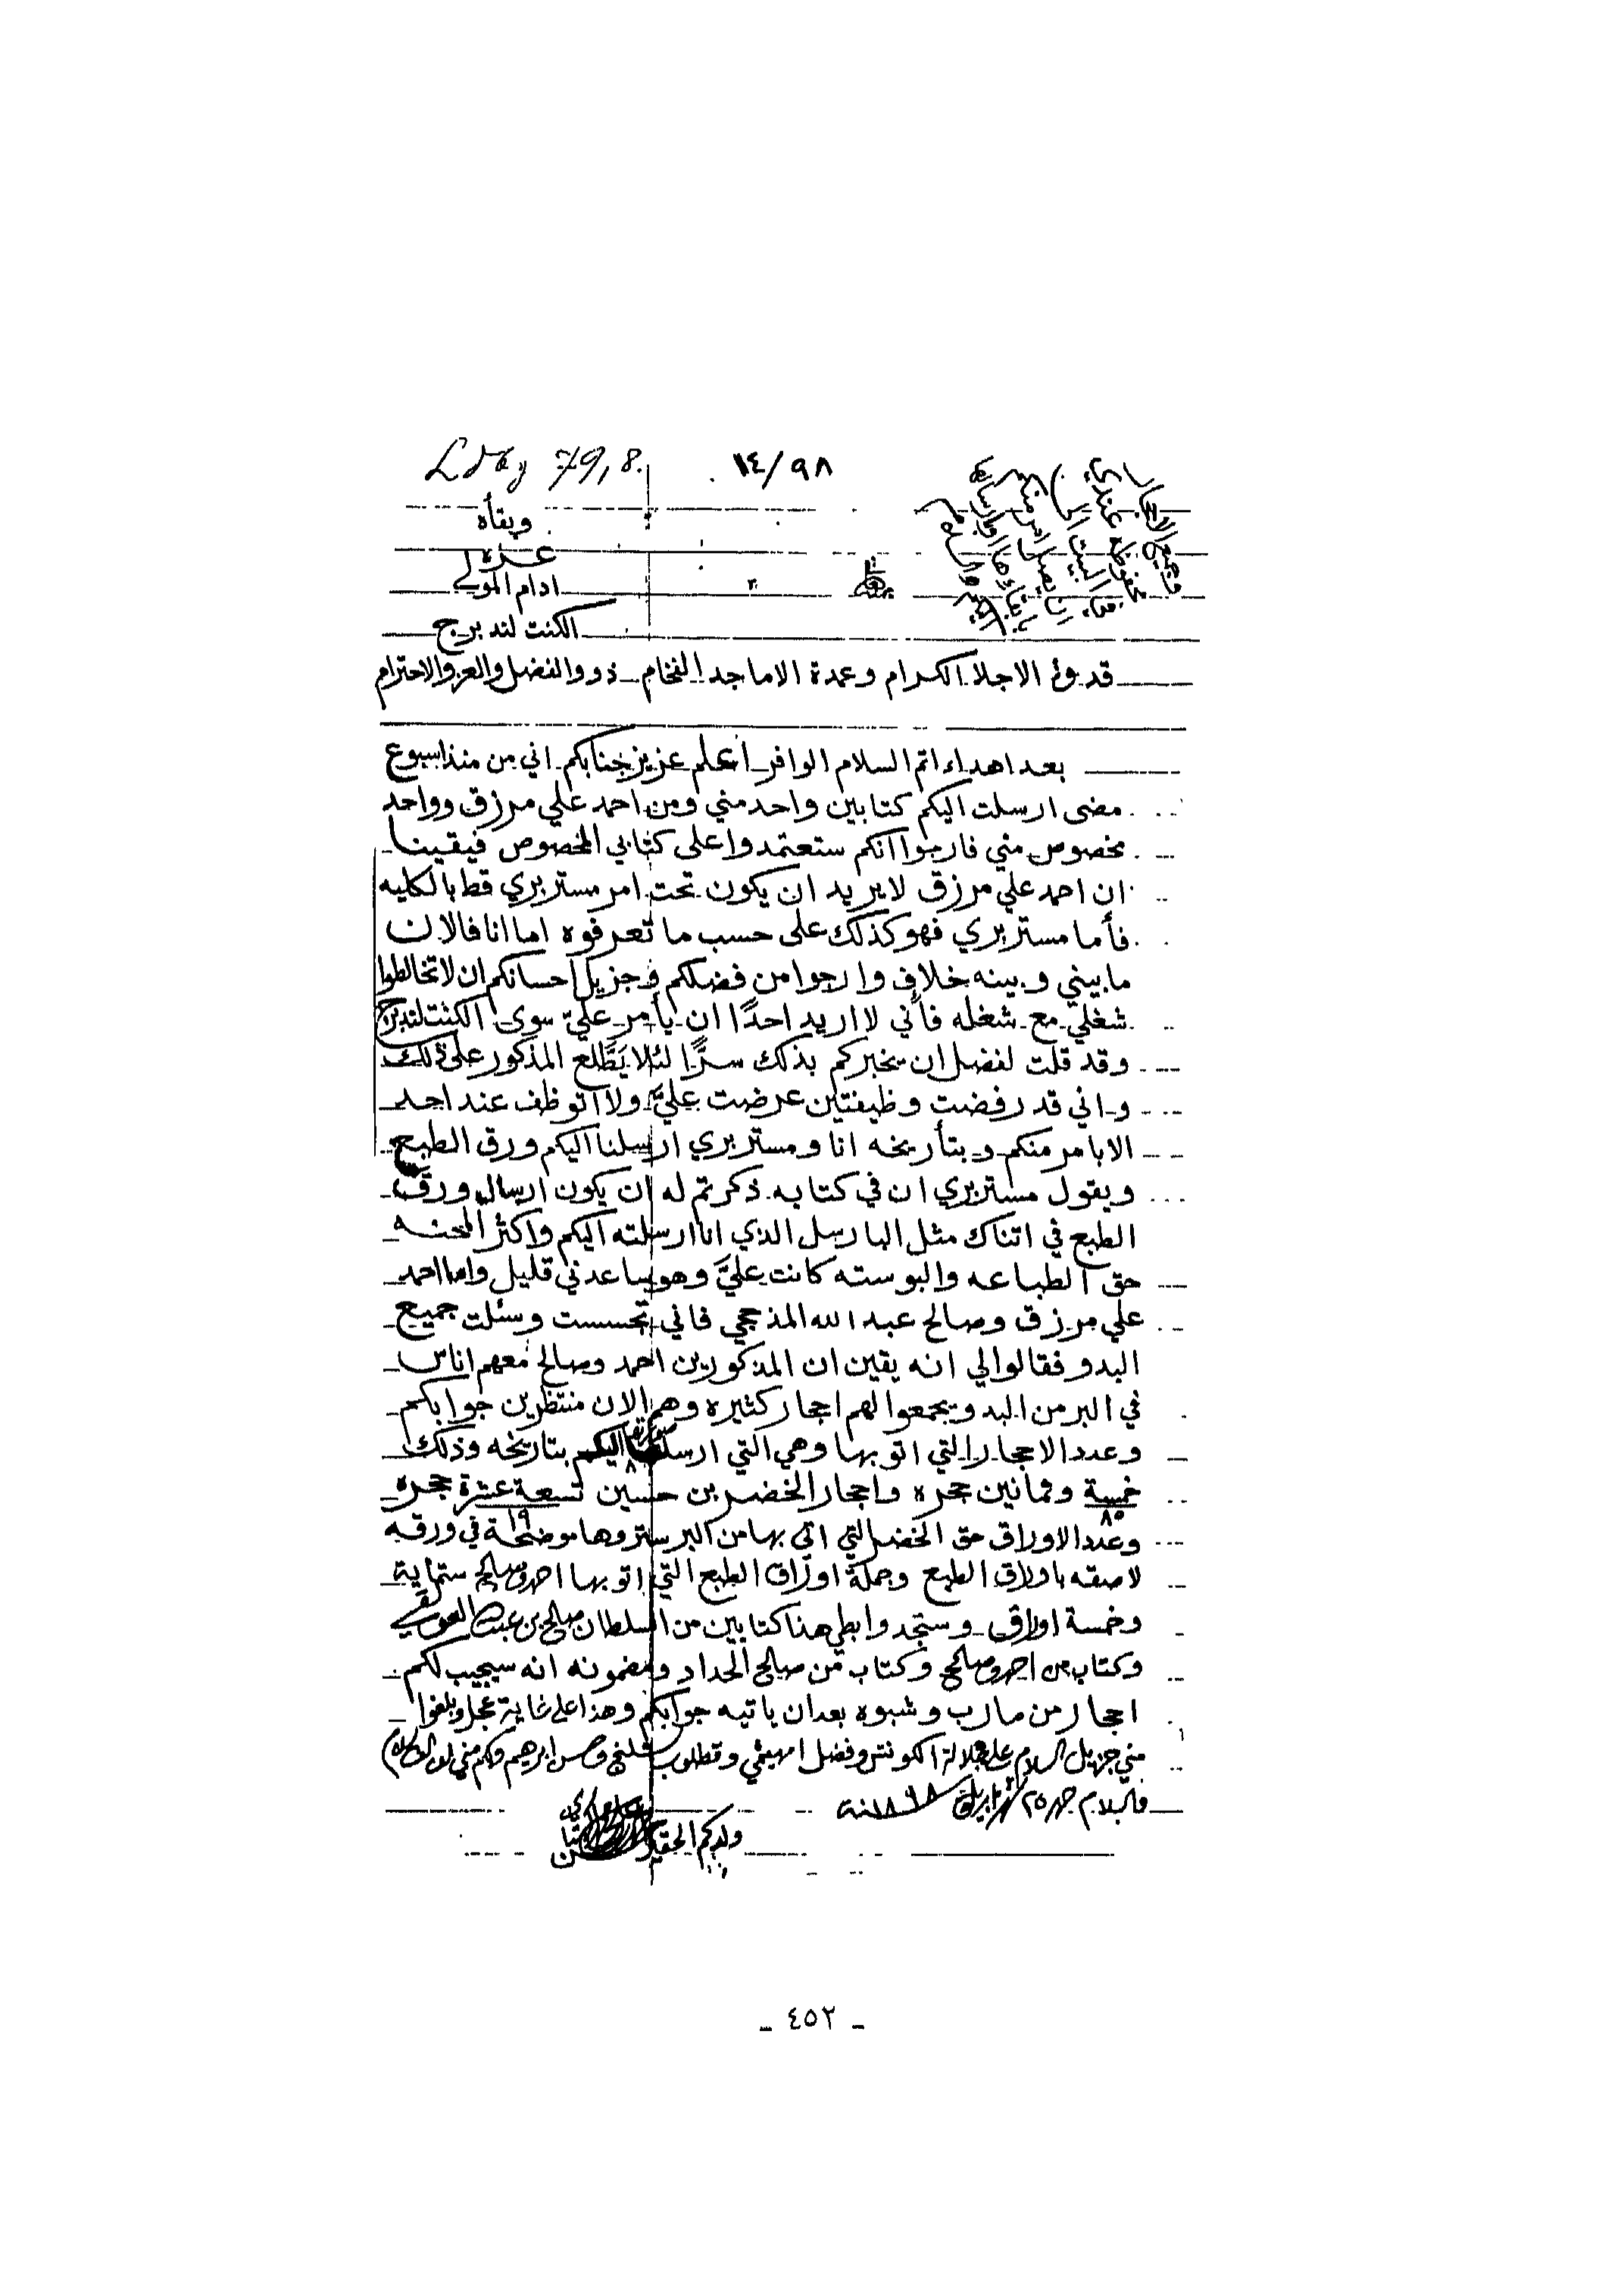 Ldbg 79,8.
١٤/٩٨
وجميع الاحجار
محفوظه عندي
في البيت الى
ان يصل امر منكم
بابقاءها او ارسالها
اليكم والسلام
وبقأه
عزه
ادام المولى
الكنت لندبرج
قدوة الاجلا الكرام وعمدة الاماجد الفخام ذو والفضل والعز والاحترام
بعد اهداء اتم السلام الوافر اعلم عزيز جنابكم اني من منذ اسبوع
مضى ارسلت اليكم كتابين واحد مني ومن احمد علي مرزق وواحد
مخصوص مني فارجوا انكم ستعتمدوا على كتابي المخصوص فيقينا
ان احمد علي مرزق لا يريد ان يكون تحت امر مستر بري قط بالكليه
فأما مستر بري فهو كذلك على حسب ما تعرفوه اما انا فالان
ما بيني وبينه خلاف وارجوا من فضلكم وجزيل احسانكم ان لا تخالطوا
شغلي مع شغله فأني لا اريد احدًا ان يأمر عليّ سوى الكنت لندبرج
وقد قلت لفضل ان يخبركم بذلك سرًّا لئلا يَطَّلع المذكور على ذلك
واني قد رفضت وظيفتين عرضت عليَّ ولا اتوظف عند احد
الا بامر منكم وبتأريخه انا ومستر بري ارسلنا اليكم ورق الطبع
ويقول مستر بري ان في كتابه ذكرتم له ان يكون ارسال ورق
الطبع في اتناك مثل البارسل الذي انا ارسلته اليكم واكثر المحنه
حق الطباعه والبوسته كانت عليَّ وهو ساعدني قليل واما احمد
علي مرزق وصالح عبد الله المذحجي فاني تجسست وسئلت جميع
البدو فقالوا لي انه يقين ان المذكورين احمد وصالح معهم اناس
في البر من البدو يجمعوا لهم احجار كثيره وهم الان منتظرين جوابكم
وعدد الاحجار التي اتو بها وهي التي ارسلت اليكم بتاريخه وذلك
خمسة وثمانين حجره واحجار الخضر بن حسين تسعة عشرة حجره
٨٥ ١٩
وعدد الاوراق حق الخضر التي اتى بها من البر ستروها موضحة في ورقه
لاصقه باوراق الطبع وجملة اوراق الطبع التي اتو بها احمد وصالح ستماية
وخمسة اوراق وستجدوا بطي هذا كتابين من السلطان صالح بن عبدالله العولقي
وكتاب من احمد وصالح وكتاب من صالح الحداد ومضمونه انه سيجيب لكم
احجار من مارب وشبوه بعد ان ياتيه جوابكم وهذا على غاية عجل وبلغوا
مني جزيل السلام على جلالة الكونتس وفضل امهيثمي ومطلوب وحسن ابرهيم ولكم مني
والسلام حرر ٢٥ شهر ابريل ١٨٩٨ سنة
ولدكم الحقير
- ٤٥٢ -